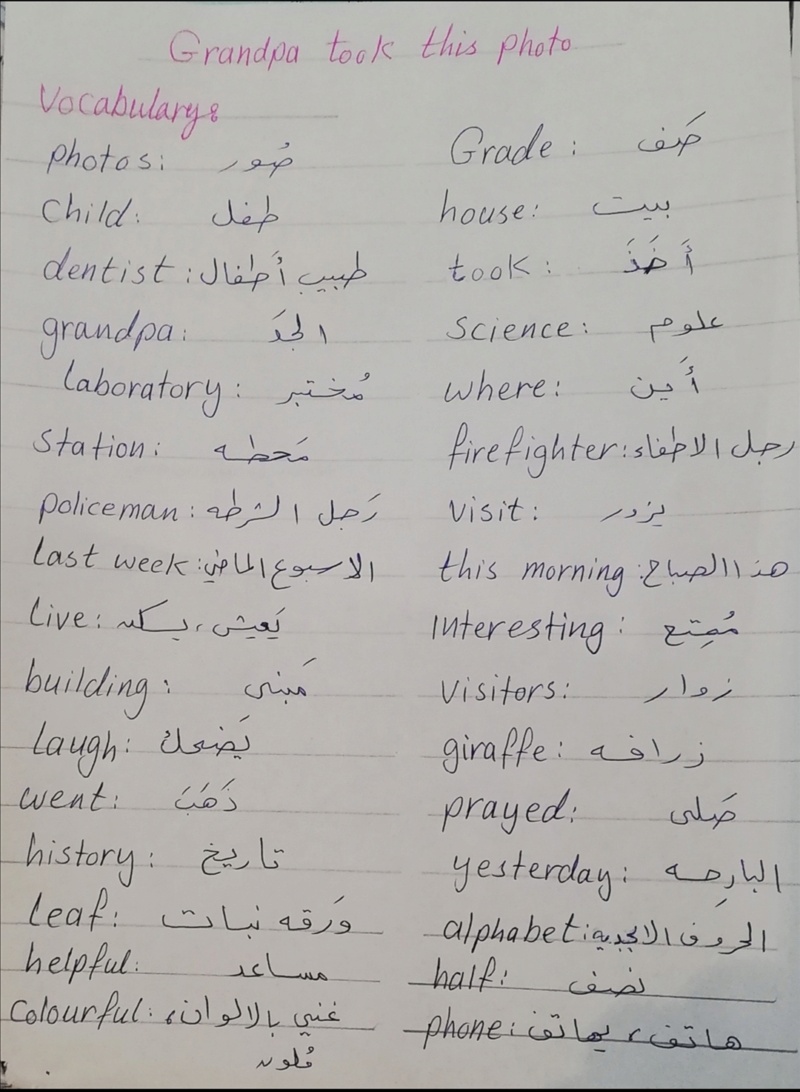 Grandpa took this photo
Vocabulary:
photos: صُور
Grade: صَف
Child: طفل
house: بيت
dentist: طبيب أطفال
took: أَخَذَ
grandpa: الجَد
Science: علوم
Laboratory: مُختبر
where: أَين
Station: مَحطه
firefighter: رجل الاطفاء
policeman: رَجل الشرطه
visit: يزور
last week: الاسبوع الماضي
this morning: هذا الصباح
live: يَعيش، يسكن
Interesting: مُمتِع
building: مَبنى
visitors: زوار
laugh: يَضحك
giraffe: زرافه
went: ذَهَبَ
prayed: صَلى
history: تاريخ
yesterday: البارِحه
leaf: وَرقه نبات
alphabet: الحروف الابجدية
helpful: مساعد
half: نصف
Colourful: غني بالالوان،
مُلون
phone: هاتف، يهاتف